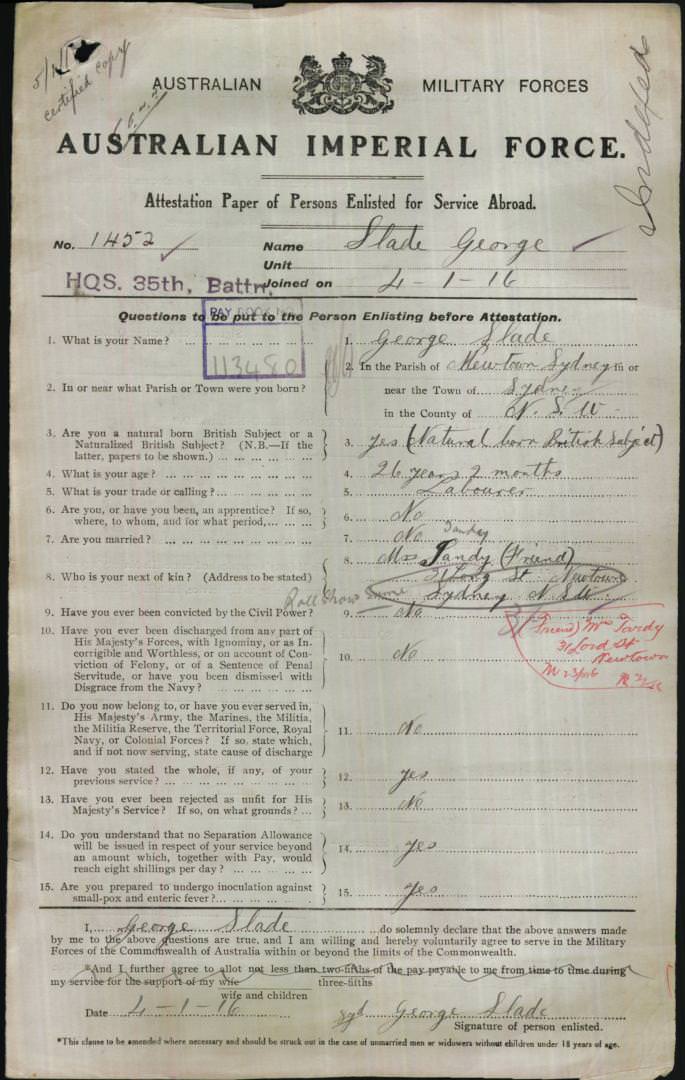 5/1/17
certified copy
Indexed
AUSTRALIAN MILITARY FORCES
AUSTRALIAN IMPERIAL FORCE.
Attestation Paper of Persons Enlisted for Service Abroad.
No. 1452
Name Slade George
Unit
HQS. 35th, Battn.
Joined on 4-1-16
Questions to be put to the Person Enlisting before Attestation.
PAY BOOK No
113480
1. What is your Name? ...
1. George Slade
2. In or near what Parish or Town were you born?
2. In the Parish of Newtown Sydney in or
near the Town of Sydney
in the County of N. S. W.
3. Are you a natural born British Subject or a
Naturalized British Subject? (N.B.—If the
latter, papers to be shown.) ...
3. yes (Natural born British Subject)
4. What is your age? ...
4. 26 years 2 months
5. What is your trade or calling? ...
5. Labourer
6. Are you, or have you been, an apprentice? If so,
where, to whom, and for what period, ...
6. No
7. Are you married? ...
7. No
8. Who is your next of kin? (Address to be stated)
8. Mrs Tandy (Friend)
St Newtown
Sydney N.S.W.
9. Have you ever been convicted by the Civil Power?
9. No
(Friend) Mrs Tardy
31 Lord St
Newtown
10. Have you ever been discharged from any part of
His Majesty's Forces, with Ignominy, or as In-
corrigible and Worthless, or on account of Con-
viction of Felony, or of a Sentence of Penal
Servitude, or have you been dismissed with
Disgrace from the Navy? ...
10. No
11. Do you now belong to, or have you ever served in,
His Majesty's Army, the Marines, the Militia,
the Militia Reserve, the Territorial Force, Royal
Navy, or Colonial Forces? If so, state which,
and if not now serving, state cause of discharge
11. No
12. Have you stated the whole, if any, of your
previous service? ...
12. yes
13. Have you ever been rejected as unfit for His
Majesty's Service? If so, on what grounds? ...
13. No
14. Do you understand that no Separation Allowance
will be issued in respect of your service beyond
an amount which, together with Pay, would
reach eight shillings per day? ...
14. yes
15. Are you prepared to undergo inoculation against
small-pox and enteric fever? ...
15. yes
I, George Slade do solemnly declare that the above answers made
by me to the above questions are true, and I am willing and hereby voluntarily agree to serve in the Military
Forces of the Commonwealth of Australia within or beyond the limits of the Commonwealth.
*And I further agree to allot not less than two-fifths of the pay payable to me from time to time during
three-fifths
my service for the support of my wife
wife and children
Date 4-1-16
sgd George Slade
Signature of person enlisted.
*This clause to be amended where necessary and should be struck out in the case of unmarried men or widowers without children under 18 years of age.